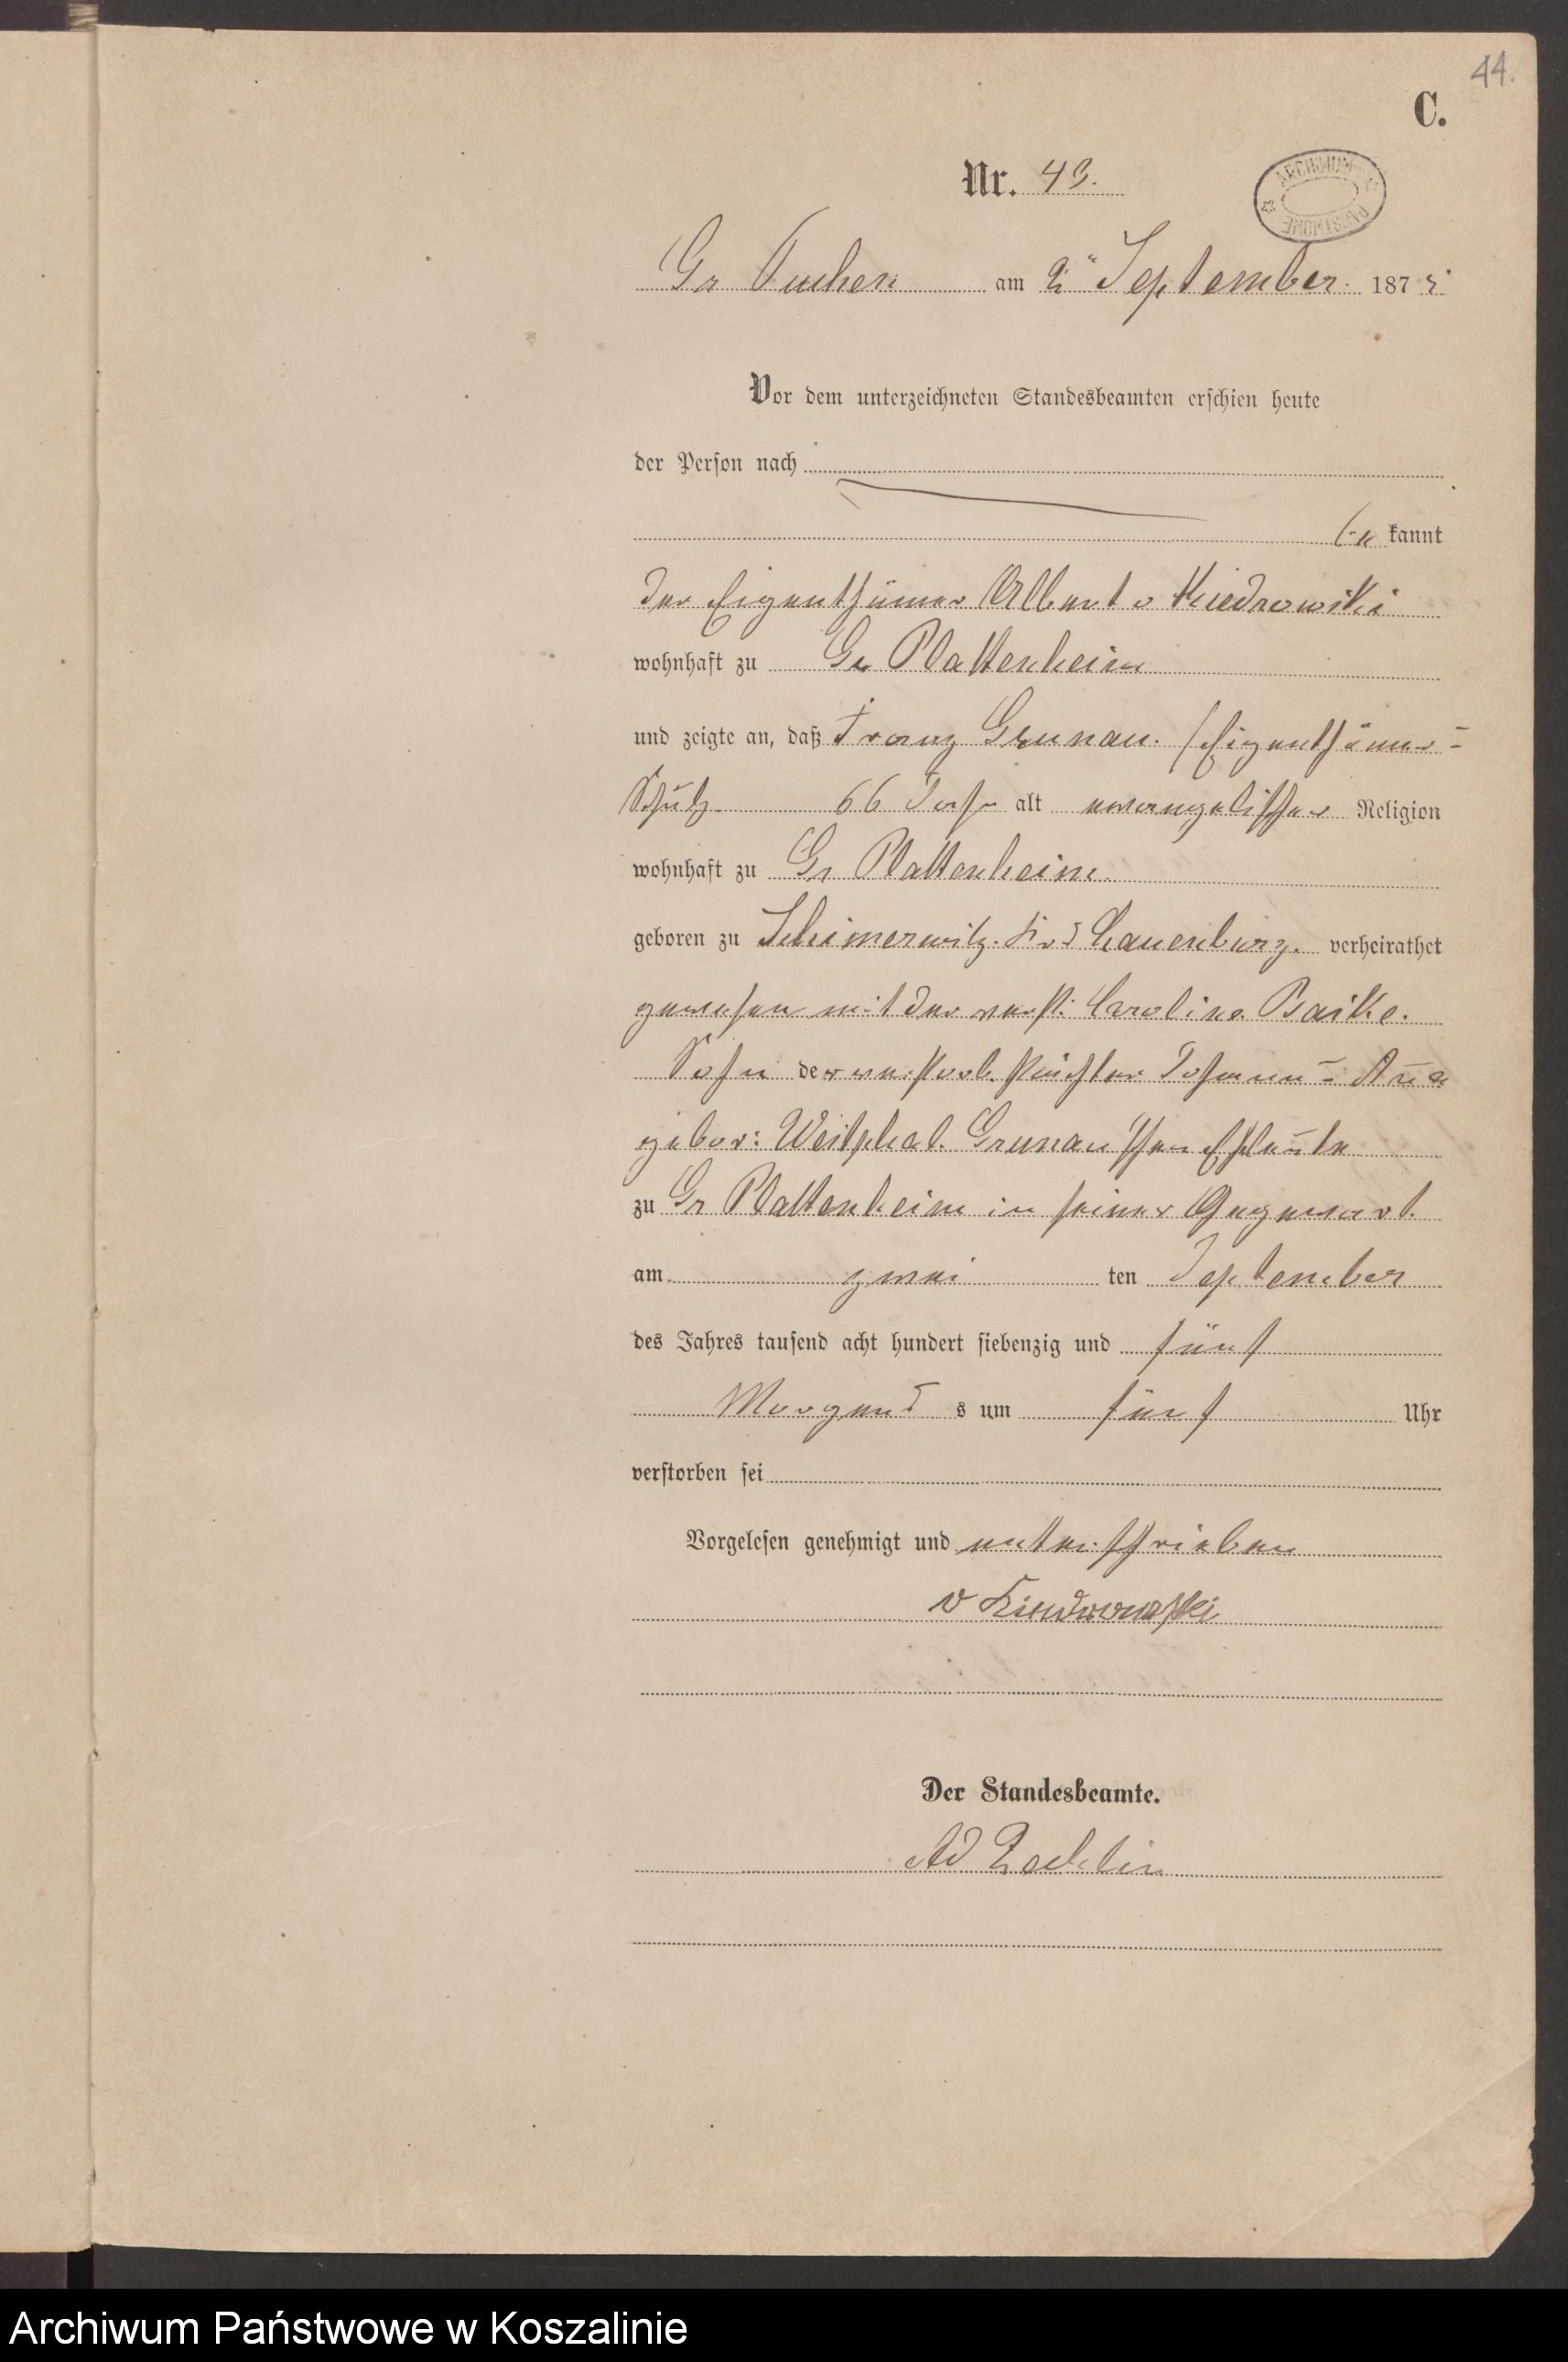 44.
C.
Nr. 43.
ARCHIWUM PAŃSTWOWE
Gr Tuchen am 2ten September. 1875
Vor dem unterzeichneten Standesbeamten erschien heute
der Person nach
be kannt
der Eigenthümer Albert v Kiedrowski
wohnhaft zu Gr Plattenheim
und zeigte an, daß Franz Grunau. / Eigenthümer-
66 Jahr alt evangelischer Religion
wohnhaft zu Gr Plattenheim.
geboren zu Schimerwitz. Krs Lauenburg. verheirathet
gewesen mit der verst. Caroline
Sohn der verstorb. Pächter Johann-
gebor: Westphal. Grunau'schen Eheleute
zu Gr Plattenheim in seiner Gegenwart.
am zwei ten September
des Jahres tausend acht hundert siebenzig und fünf
Morgens s um fünf Uhr
verstorben sei
Vorgelesen genehmigt und unterschrieben
v Kiedrowski
Der Standesbeamte.
Ad
Archiwum Państwowe w Koszalinie